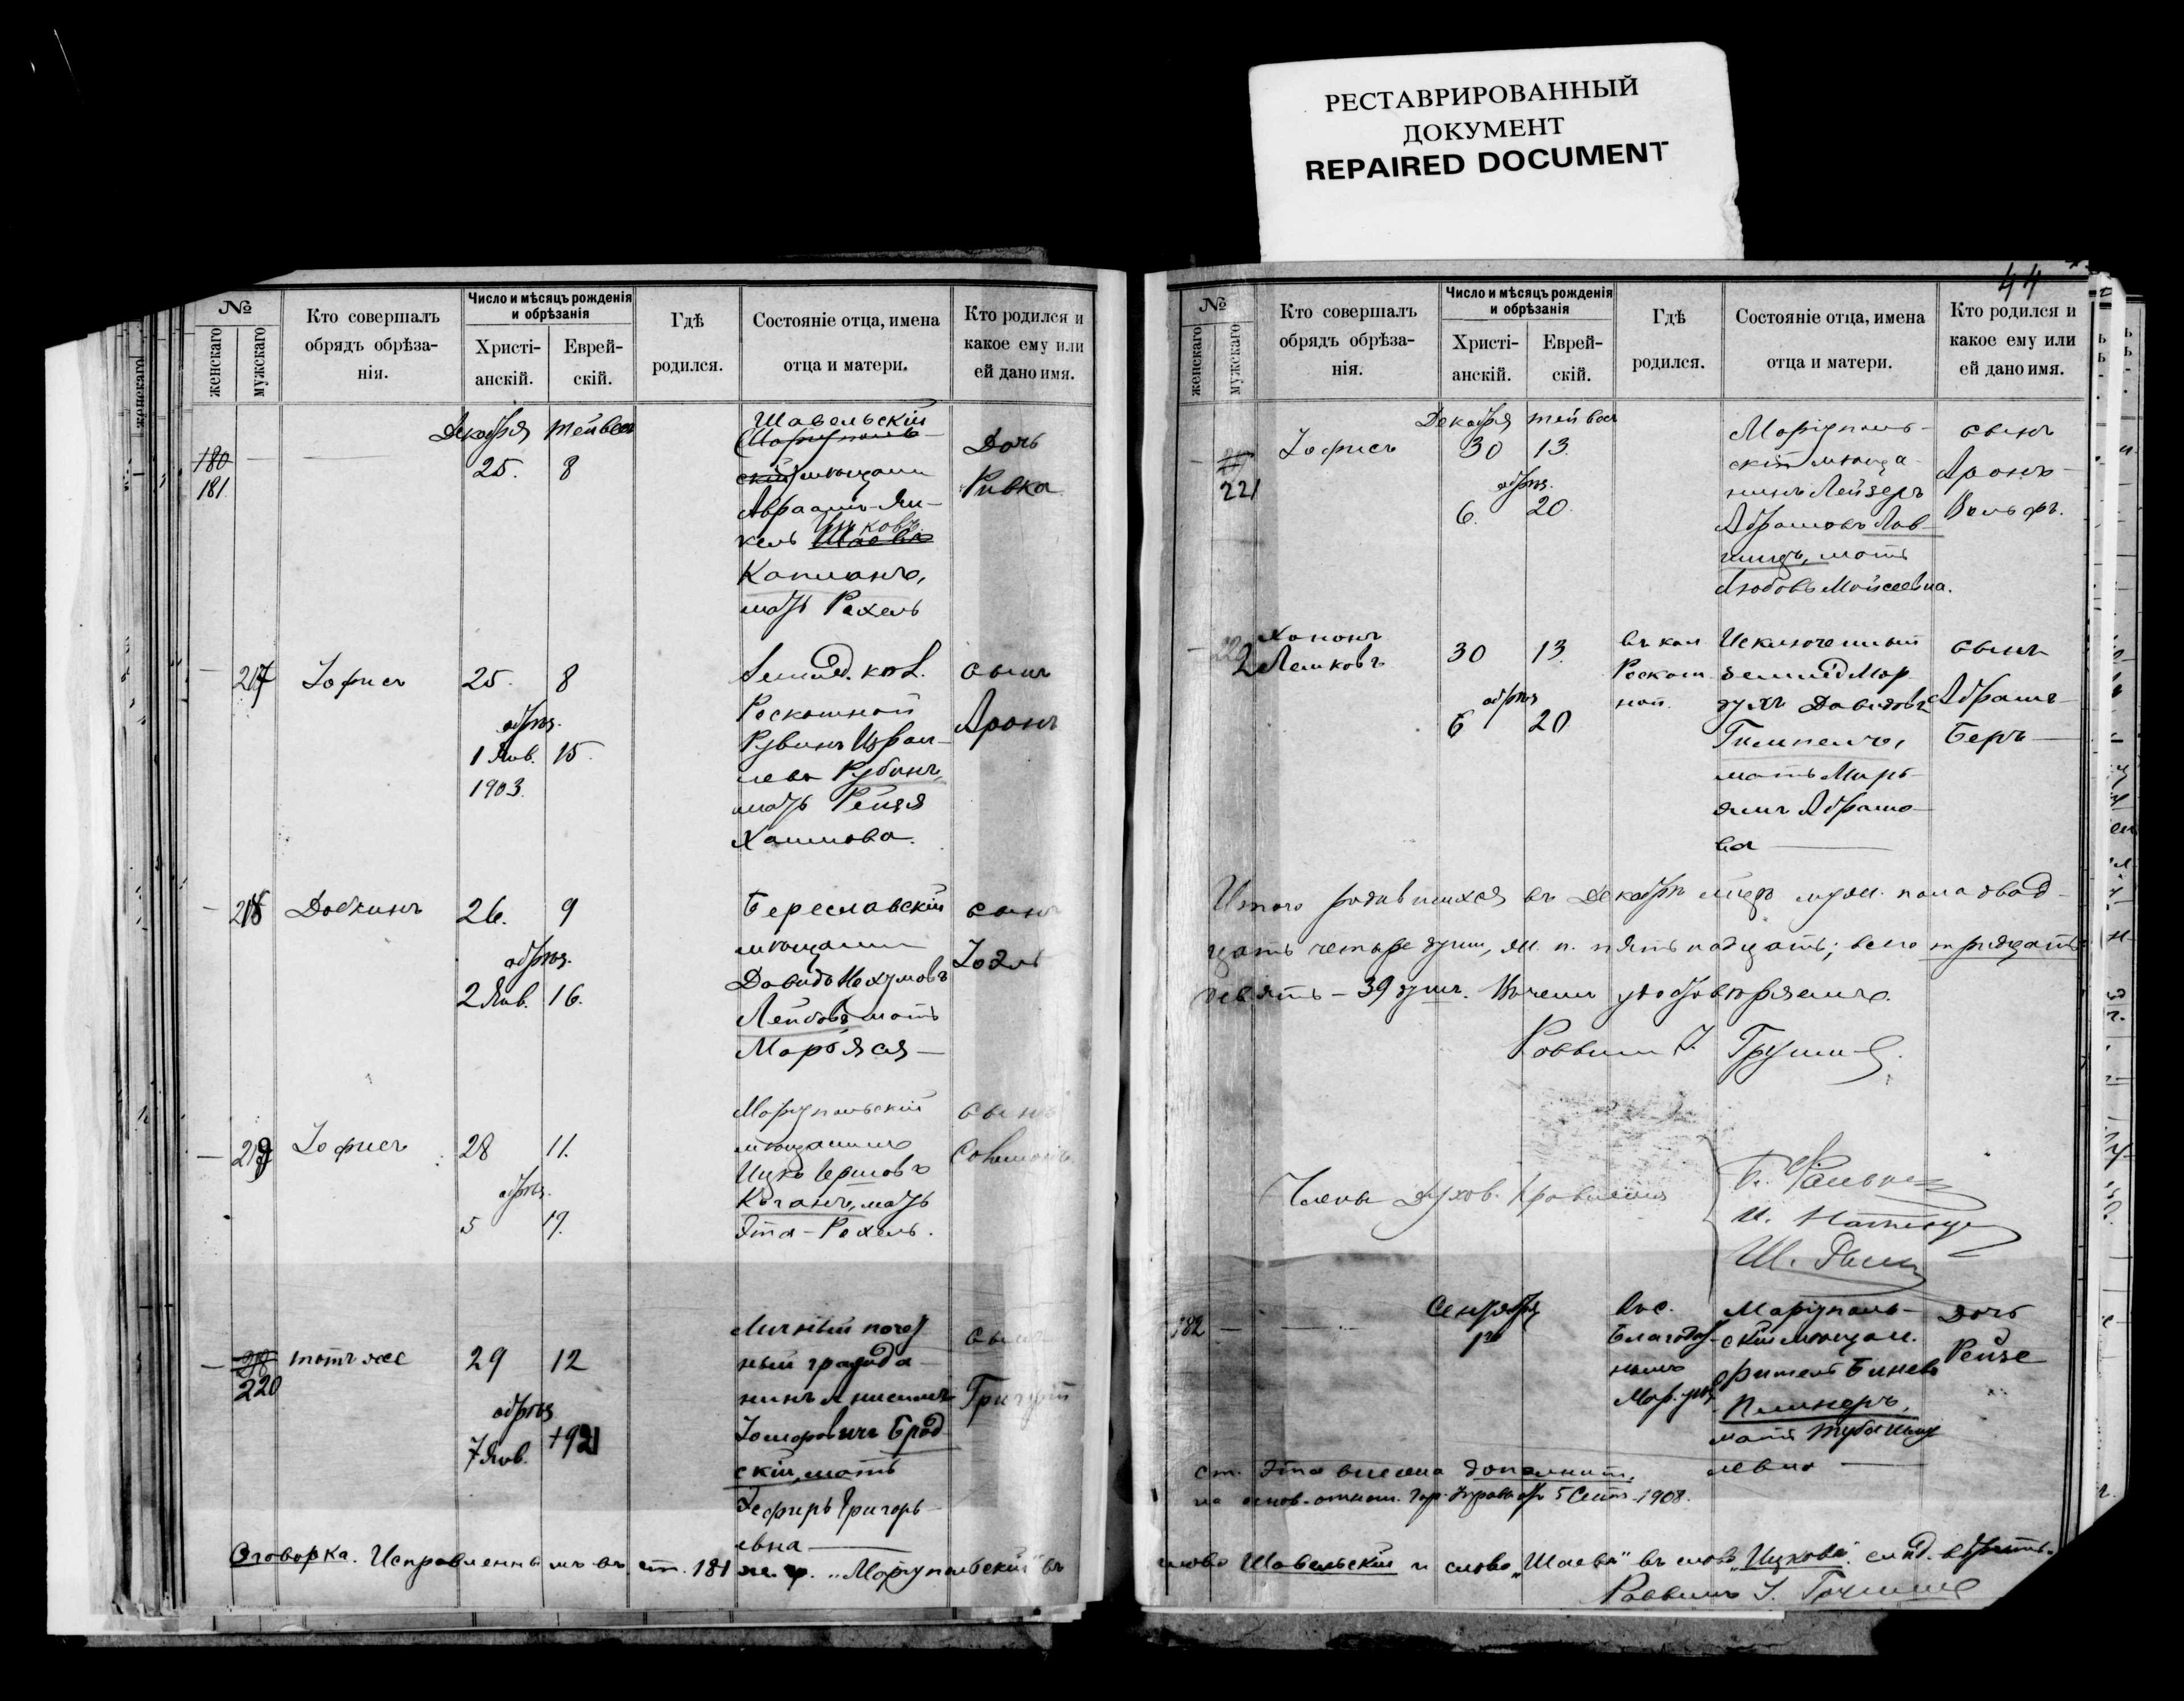 РЕСТАВРИРОВАННЫЙ
ДОКУМЕНТ
REPAIRED DOCUMENT
44
№
женскаго
мужскаго
Кто совершалъ
обрядъ обрѣза-
нія.
Число и мѣсяцъ рожденія
и обрѣзанія
Христі-
анскій.
Еврей-
скій.
Гдѣ
родился.
Состояніе отца, имена
отца и матери.
Кто родился и
какое ему или
ей дано имя.
180
181
Декабря
25.
Тейвесъ
8
Шавельскій
Маріуполь-
скій мѣщанин
Авраамъ-Ян-
кель Ицковъ
Шаевъ
Капланъ,
мать Рахель
Дочь
Ривка
217
Іофисъ
25.
обрѣз.
1 Янв.
1903.
8
15.
Земвлад. кол.
Роскошной
Рувинъ Израи-
левъ Рубинъ,
мать Рейзя
Хаимова.
сынъ
Аронъ
218
Доскинъ
26.
обрѣз.
2 Янв.
9
16.
Береславскій
мѣщанин
Давидъ Нахумовъ
Лейбовъ мать
Марьяся —
сынъ
Іоэль
219
Іофисъ
28
обрѣз.
5
11.
19.
Маріупольскій
мѣщанинъ
Ицко Гершовъ
Каганъ, мать
Эта-Рахель.
сынъ
Соломонъ.
220
тотъ же
29
обрѣз
7 Янв.
12
21
Личный почет
ный гражда-
нинъ Анисимъ
Брод
скій, мать
Григорь-
евна —
сынъ
Григорій
Оговорка. Исправленнымъ въ ст. 181 ж. р. „Маріупольскій" въ
№
женскаго
мужскаго
Кто совершалъ
обрядъ обрѣза-
нія.
Число и мѣсяцъ рожденія
и обрѣзанія
Христі-
анскій.
Еврей-
скій.
Гдѣ
родился.
Состояніе отца, имена
отца и матери.
Кто родился и
какое ему или
ей дано имя.
221
Іофисъ
Декабря
30
обрѣз.
6.
Тейвесъ
13.
20.
Маріуполь-
скій мѣща-
нинъ Лейзеръ
Абрамовъ Лив-
шицъ, мать
Любовь Мойсеевна.
сынъ
Аронъ-
Вольфъ.
222
Хононъ
Лешковъ
30
обрѣз
6
13.
20
въ кол
Роскош
ной.
Исключенный
земвлад Мор
духъ Давидовъ
Гимпель,
мать Мирь-
ямъ Абрамо-
ва —
сынъ
Абрамъ-
Беръ —
Итого родившихся въ Декабрѣ мцѣ муж. пола двад-
цать четыре души, ж. п. пятьнадцать; всего тридцать
девять — 39 душъ. Въ чемъ удостовѣряемъ.
Раввинъ І.
Члены Духов. Правленія
182
Сентября
Благодат
номъ
Мар. уѣз
Маріуполь-
скій мѣщан.
мать
дочь
Рейзе
ст. эта внесена дополнит.
на основ. отнош. Гор. Управы отъ 5 Сент. 1908.
слово Шавельскій и слово „Шаевъ" въ слово „Ицковъ". слѣд. вѣрить.
Раввинъ І.